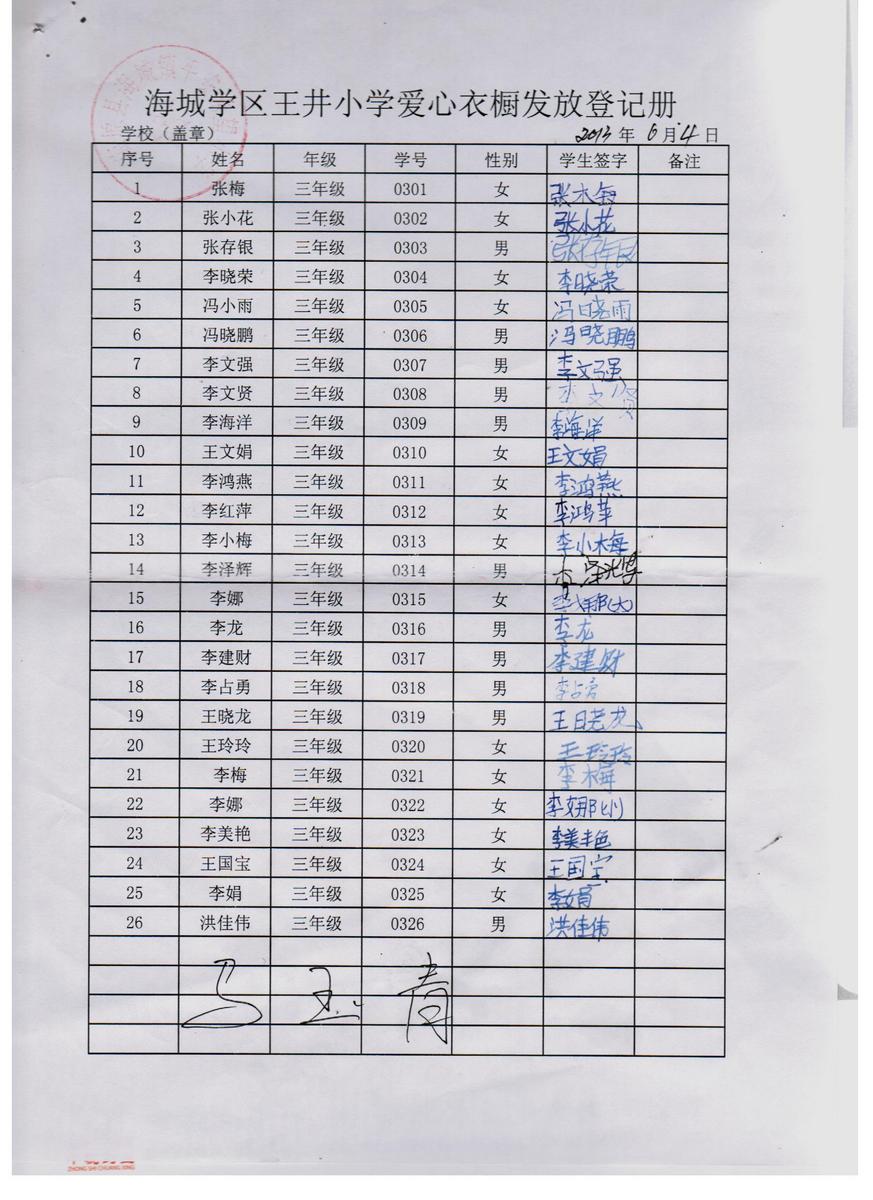 海城学区王井小学爱心衣橱发放登记册
学校（盖章） 2013 年 6 月 4 日
序号 姓名 年级 学号 性别 学生签字 备注
1 张梅 三年级 0301 女
2 张小花 三年级 0302 女 张小花
3 张存银 三年级 0303 男 张存银
4 李晓荣 三年级 0304 女 李晓荣
5 冯小雨 三年级 0305 女 冯晓雨
6 冯晓鹏 三年级 0306 男 冯晓鹏
7 李文强 三年级 0307 男 李文强
8 李文贤 三年级 0308 男 李文贤
9 李海洋 三年级 0309 男 李海洋
10 王文娟 三年级 0310 女 王文娟
11 李鸿燕 三年级 0311 女 李鸿燕
12 李红萍 三年级 0312 女
13 李小梅 三年级 0313 女 李小梅
14 李泽辉 三年级 0314 男 李泽辉
15 李娜 三年级 0315 女 李娜(大)
16 李龙 三年级 0316 男 李龙
17 李建财 三年级 0317 男 李建财
18 李占勇 三年级 0318 男
19 王晓龙 三年级 0319 男 王晓龙
20 王玲玲 三年级 0320 女 王玲玲
21 李梅 三年级 0321 女 李梅
22 李娜 三年级 0322 女 李娜(小)
23 李美艳 三年级 0323 女 李美艳
24 王国宝 三年级 0324 女 王国宝
25 李娟 三年级 0325 女 李娟
26 洪佳伟 三年级 0326 男 洪佳伟
马玉青
ZHONG SHI CHUANG XING